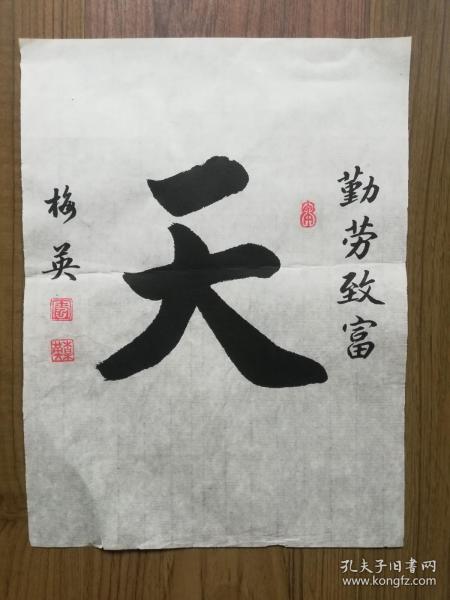 勤劳致富
天
梅英
孔夫子旧书网
www.kongfz.com